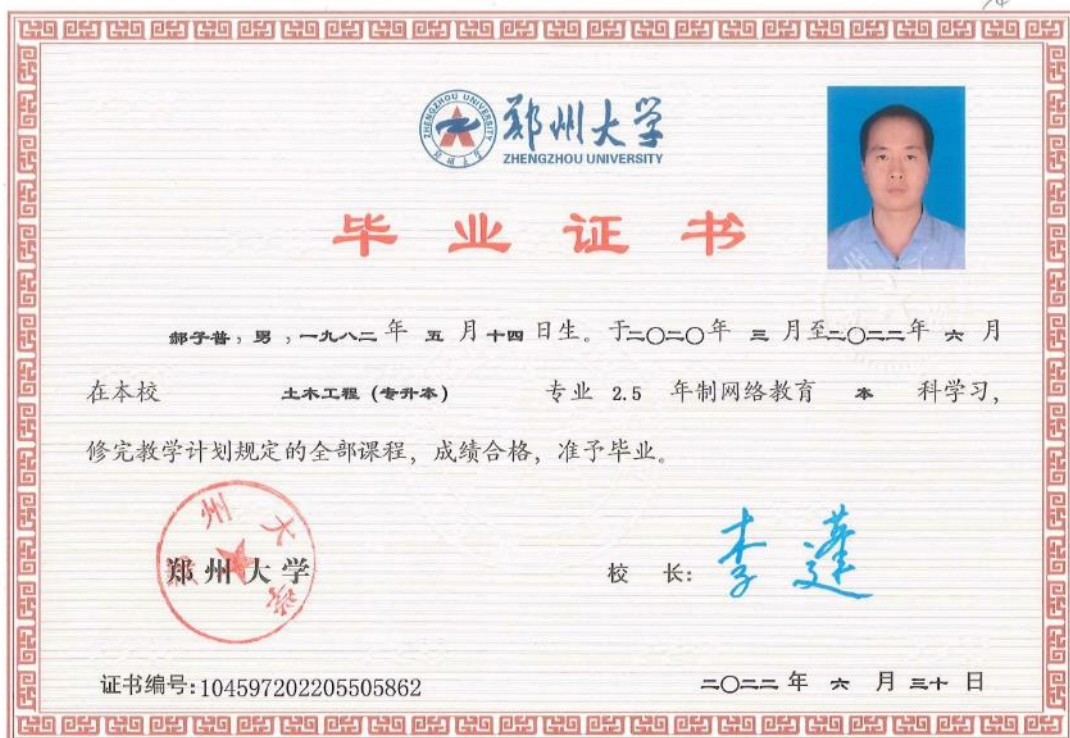 郑州大学
ZHENGZHOU UNIVERSITY
毕业证书
郝子普，男，一九八二年 五 月十四日生。于二〇二〇年 三 月至二〇二二年 六 月
在本校 土木工程（专升本） 专业 2.5 年制网络教育 本 科学习，
修完教学计划规定的全部课程，成绩合格，准予毕业。
郑州大学
郑州大学
校 长：李蓬
证书编号:104597202205505862
二〇二二 年 六 月 三十 日